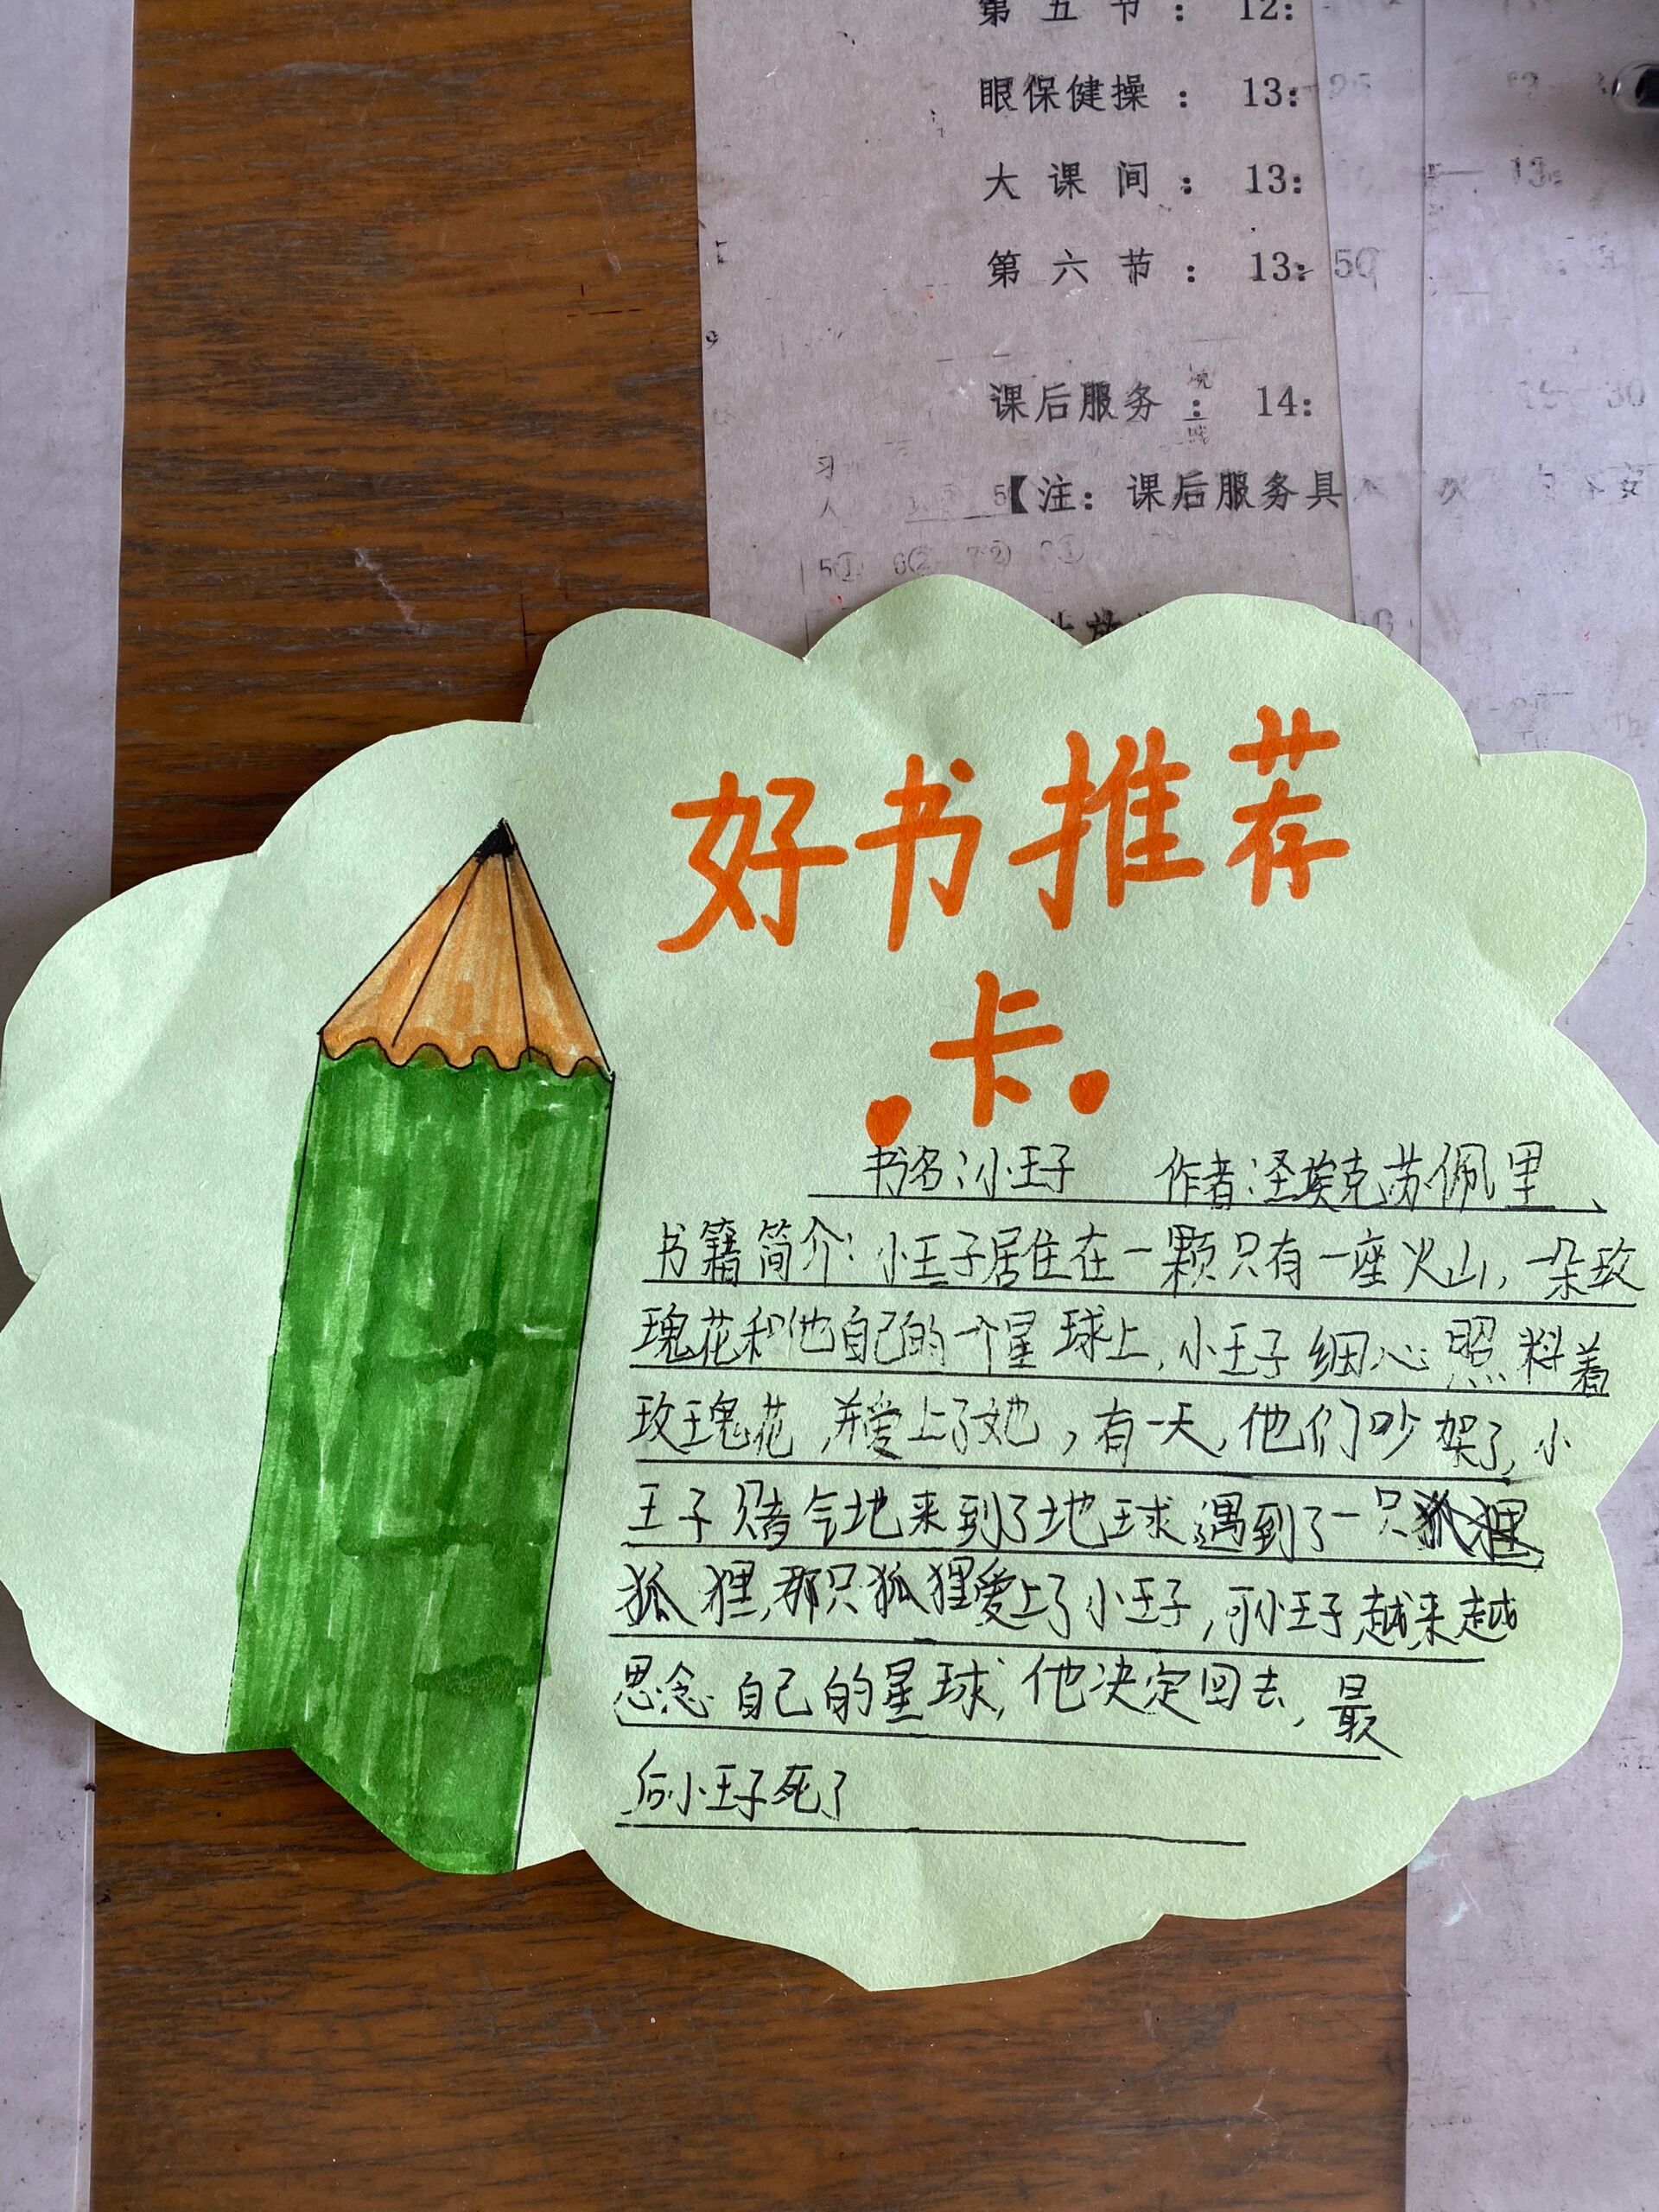 第五节：12:
眼保健操：13:
大课间：13:
第六节：13:50
课后服务：14:
【注：课后服务具
好书推荐
卡
书名:小王子 作者:圣埃克苏佩里、
书籍简介:小王子居住在一颗只有一座火山,一朵玫
瑰花和他自己的一个星球上,小王子细心照料着
玫瑰花,并爱上了她,有一天,他们吵架了,小
王子赌气地来到了地球,遇到了一只狐狸
狐狸,那只狐狸爱上了小王子,可小王子越来越
思念自己的星球,他决定回去,最
后小王子死了